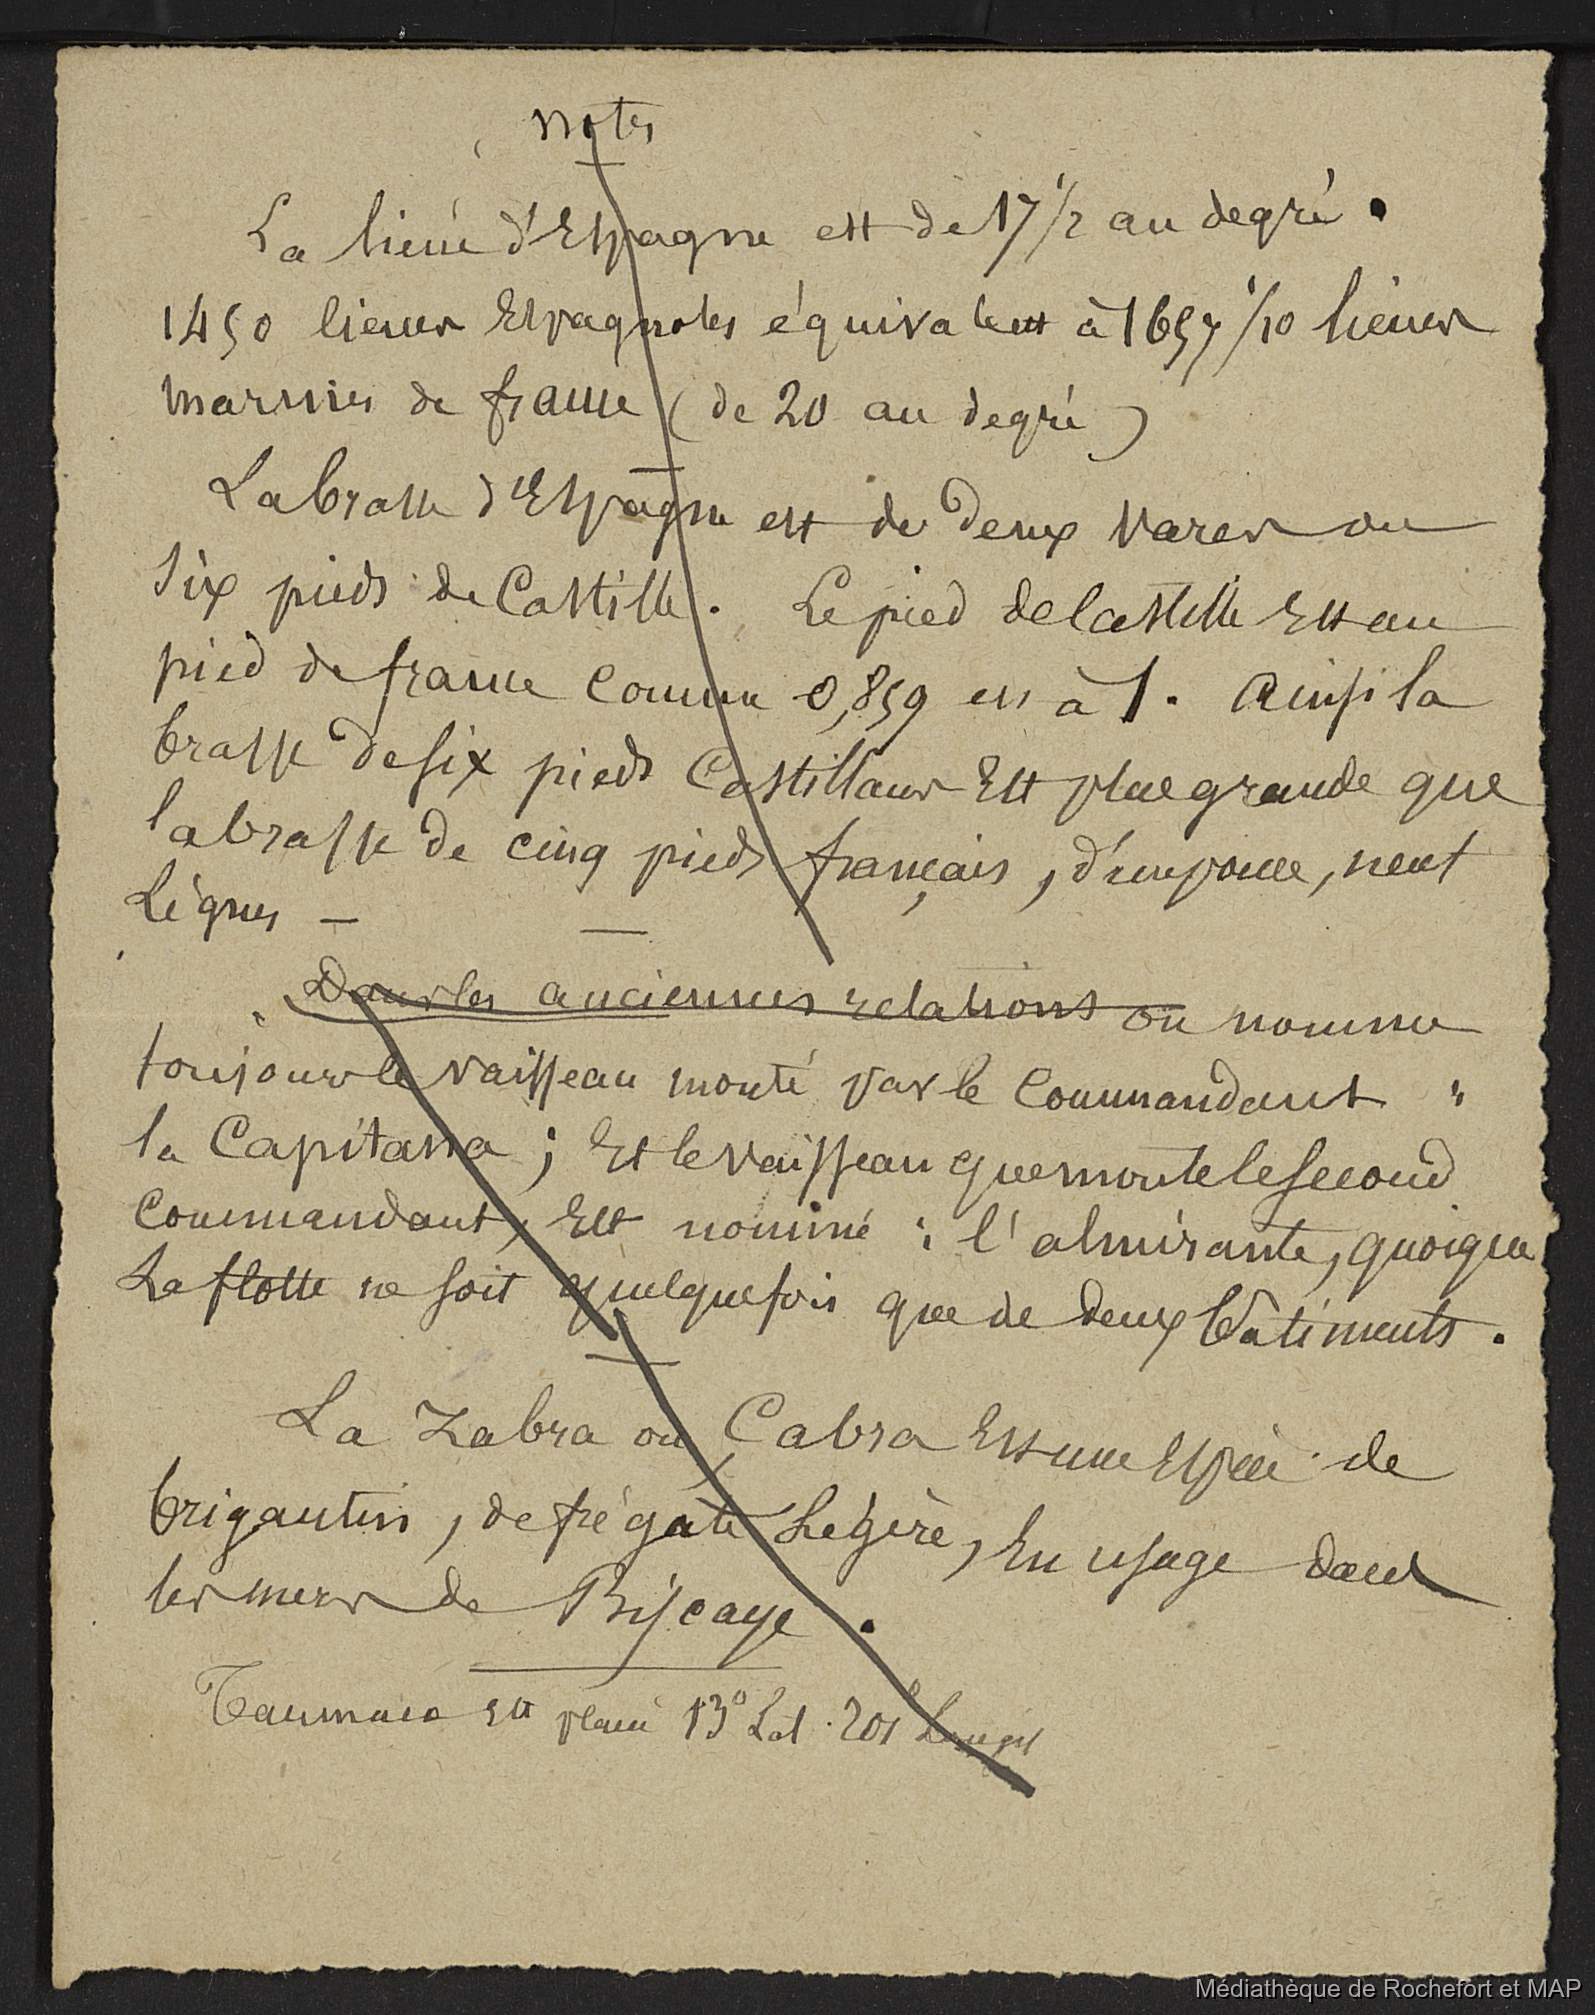 notes
La lieue d'Espagne est de 17 1/2 au degré.
1450 lieues Espagnoles équivalent à 1657 1/10 lieues
marines de france (de 20 au degré)
La brasse d'Espagne est de deux vares ou
six pieds de Castille. Le pied de Castille Est au
pied de france comme 0,859 est à 1. Ainsi la
brasse de six pieds Castillans Est plus grande que
la brasse de cinq pieds français, d'un pouce, neuf
Lignes —
Dans les anciennes relations on nomme
toujours le vaisseau monté par le Commandant "
la Capitana ; Et le vaisseau que monte le second
Commandant, Est nommé : l'almirante, quoique
La flotte ne soit quelquefois que de deux bâtiments.
La Zabra ou Çabra Est une Espèce de
brigantin, de frégate Légère, En usage dans
les mers de Biscaye.
Taumaco Est placé 13° Lat. 201° Longit
Médiathèque de Rochefort et MAP